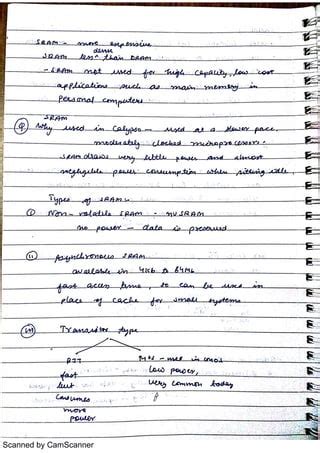 SRAM - more expensive
dense
SRAM less than DRAM
- SRAM not used for high capacity, low cost
applications such as main memory in
Personal computers
SRAM
Q. Why used in Calypso - used at a slower pace.
moderately clocked microprocessors.
SRAM draws very little power and almost
negligible power consumption when sitting idle.
Types of SRAM
(i) Non-volatile SRAM - nvSRAM
no power - data is preserved
(ii) Asynchronous SRAM
available in 4kb to 64Mb
fast access time, so can be used in
place of cache for small systems
(iii) Transistor type
BJT
MOS - used in CMOS
fast
low power,
but
very common today
consumes
more
power
Scanned by CamScanner